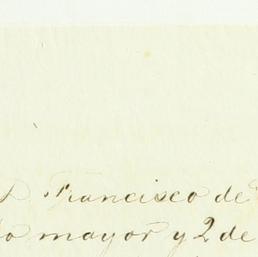 D. Francisco de
mayor y 2 de